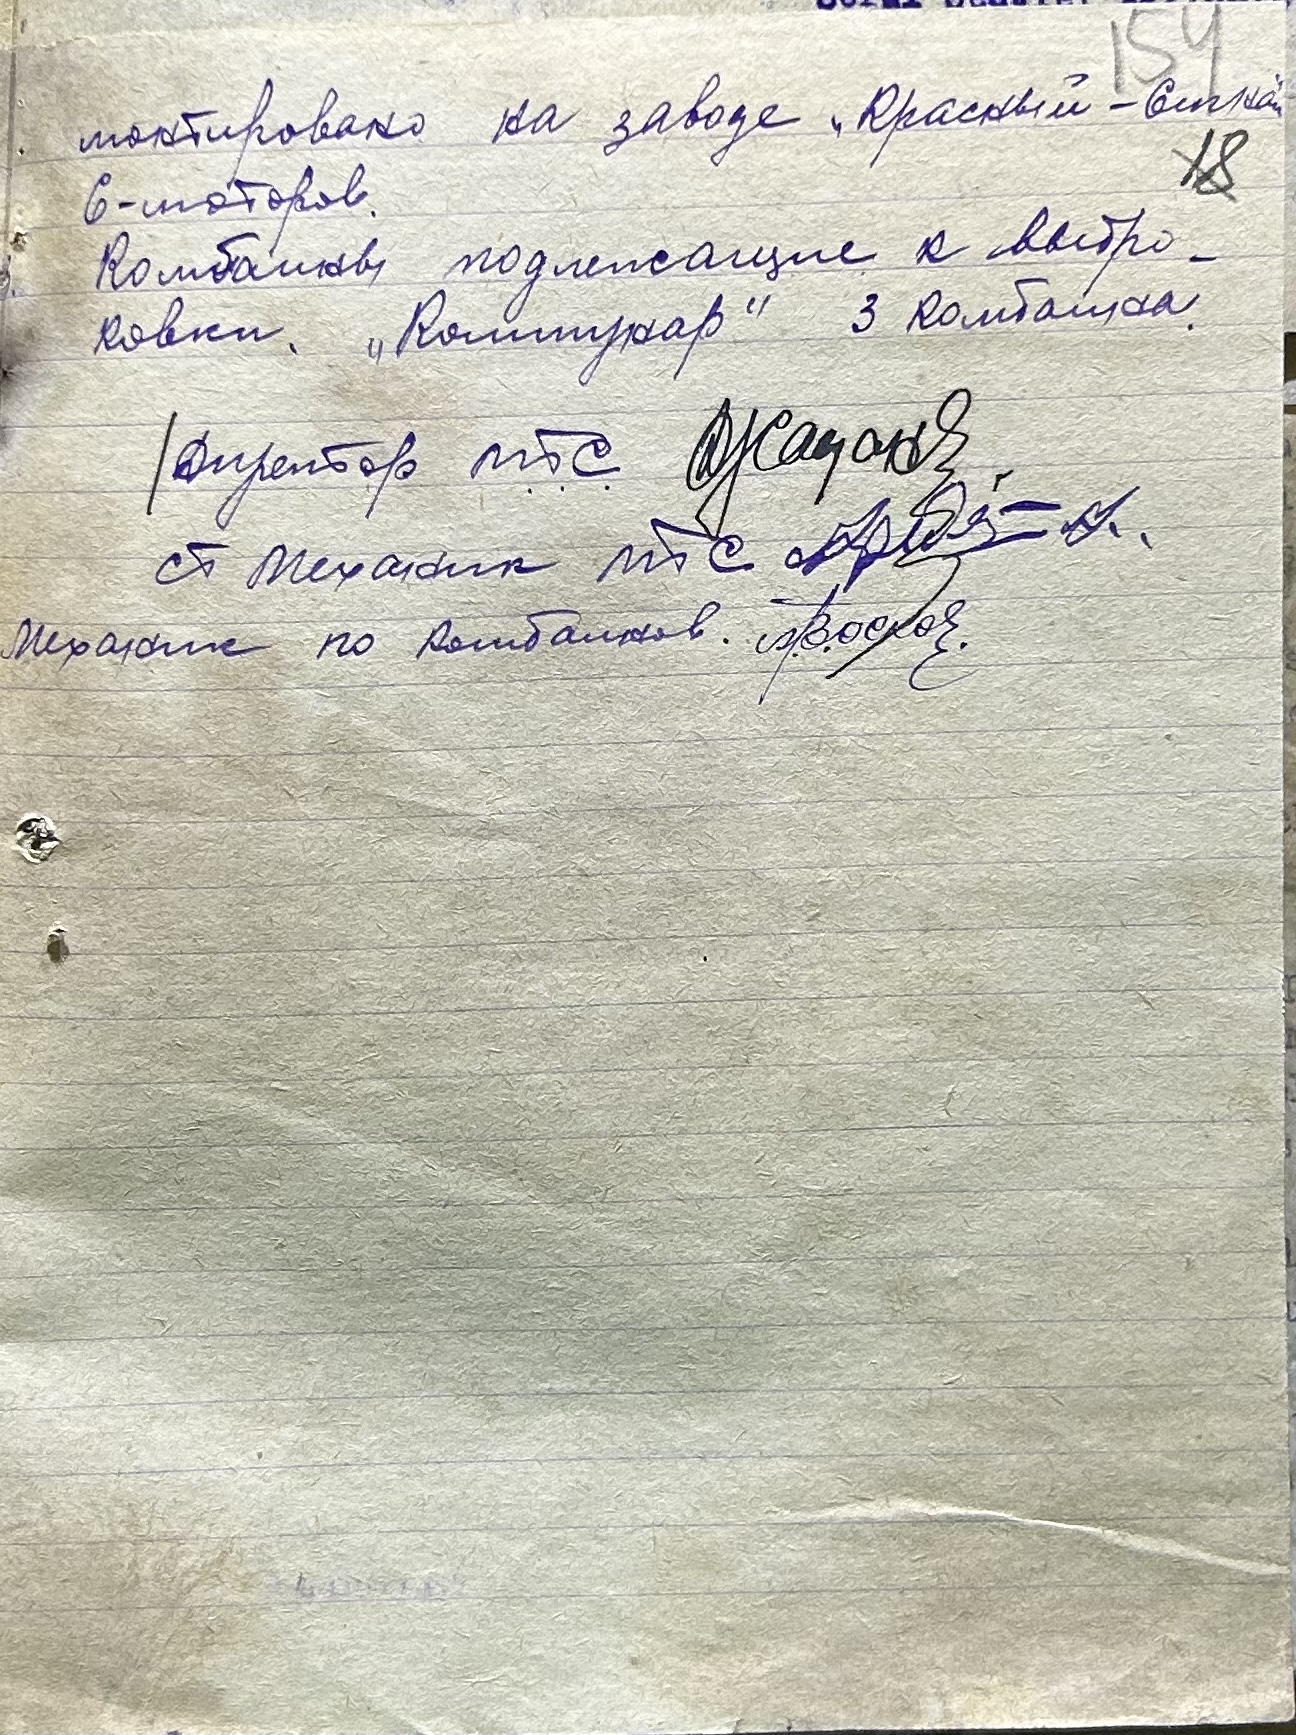 154
монтировано на заводе „Красный-Сигнал
18
6-моторов.
Комбайны подлежащие к выбро-
ковки. „Коммунар" 3 комбайна.
Директор МТС
ст Механик МТС
Механик по комбайнов.